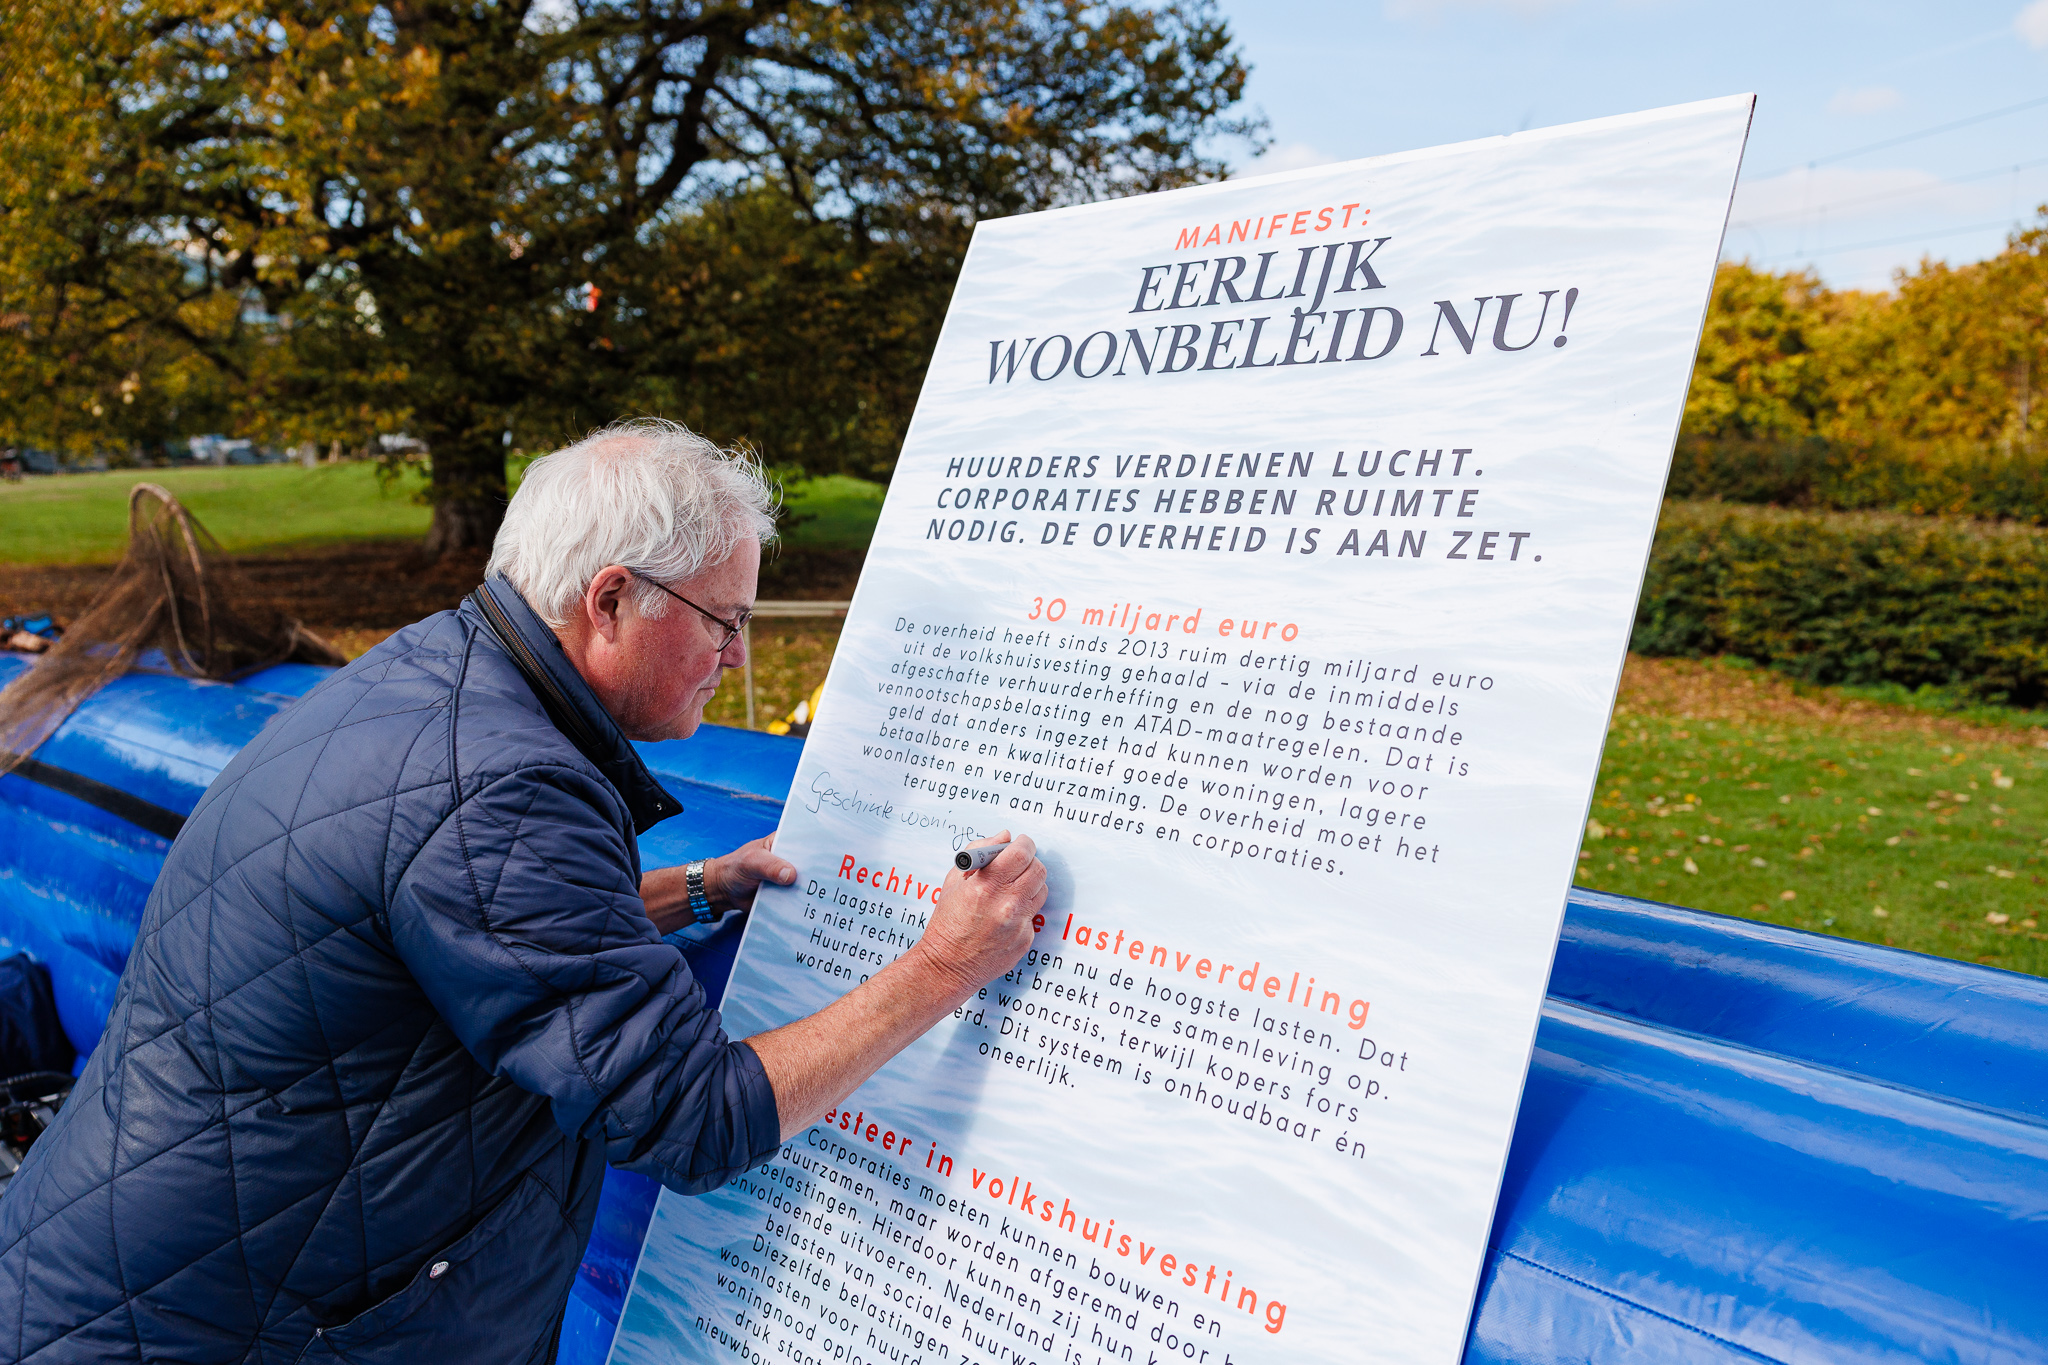 MANIFEST:
EERLIJK
WOONBELEID NU!
HUURDERS VERDIENEN LUCHT.
CORPORATIES HEBBEN RUIMTE
NODIG. DE OVERHEID IS AAN ZET.
30 miljard euro
De overheid heeft sinds 2013 ruim dertig miljard euro
uit de volkshuisvesting gehaald - via de inmiddels
afgeschafte verhuurderheffing en de nog bestaande
vennootschapsbelasting en ATAD-maatregelen. Dat is
geld dat anders ingezet had kunnen worden voor
betaalbare en kwalitatief goede woningen, lagere
woonlasten en verduurzaming. De overheid moet het
teruggeven aan huurders en corporaties.
Geschikte woningen
Rechtva e lastenverdeling
De laagste ink gen nu de hoogste lasten. Dat
is niet rechtv et breekt onze samenleving op.
Huurders e wooncrsis, terwijl kopers fors
worden erd. Dit systeem is onhoudbaar én
oneerlijk.
esteer in volkshuisvesting
Corporaties moeten kunnen bouwen en
duurzamen, maar worden afgeremd door
belastingen. Hierdoor kunnen zij hun
onvoldoende uitvoeren. Nederland is
belasten van sociale huurwo
Diezelfde belastingen
woonlasten voor huurd
woningnood oplo
druk staat
nieuwbou